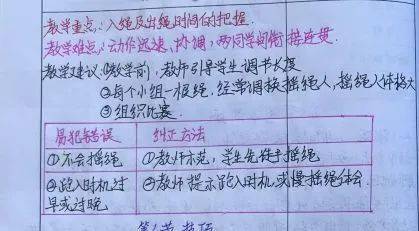 教学重点：入绳及出绳时间的把握.
教学难点：动作迅速、协调，两同学间衔接连贯.
教学建议：①教学前，教师引导学生调节长度
②每个小组一根绳，经常调换摇绳人，摇绳人体格大
③组织比赛.
易犯错误 纠正方法
①不会摇绳 ①教师示范，学生先徒手摇绳
②跑入时机过 ②教师提示跑入时机或慢摇绳体会.
早或过晚